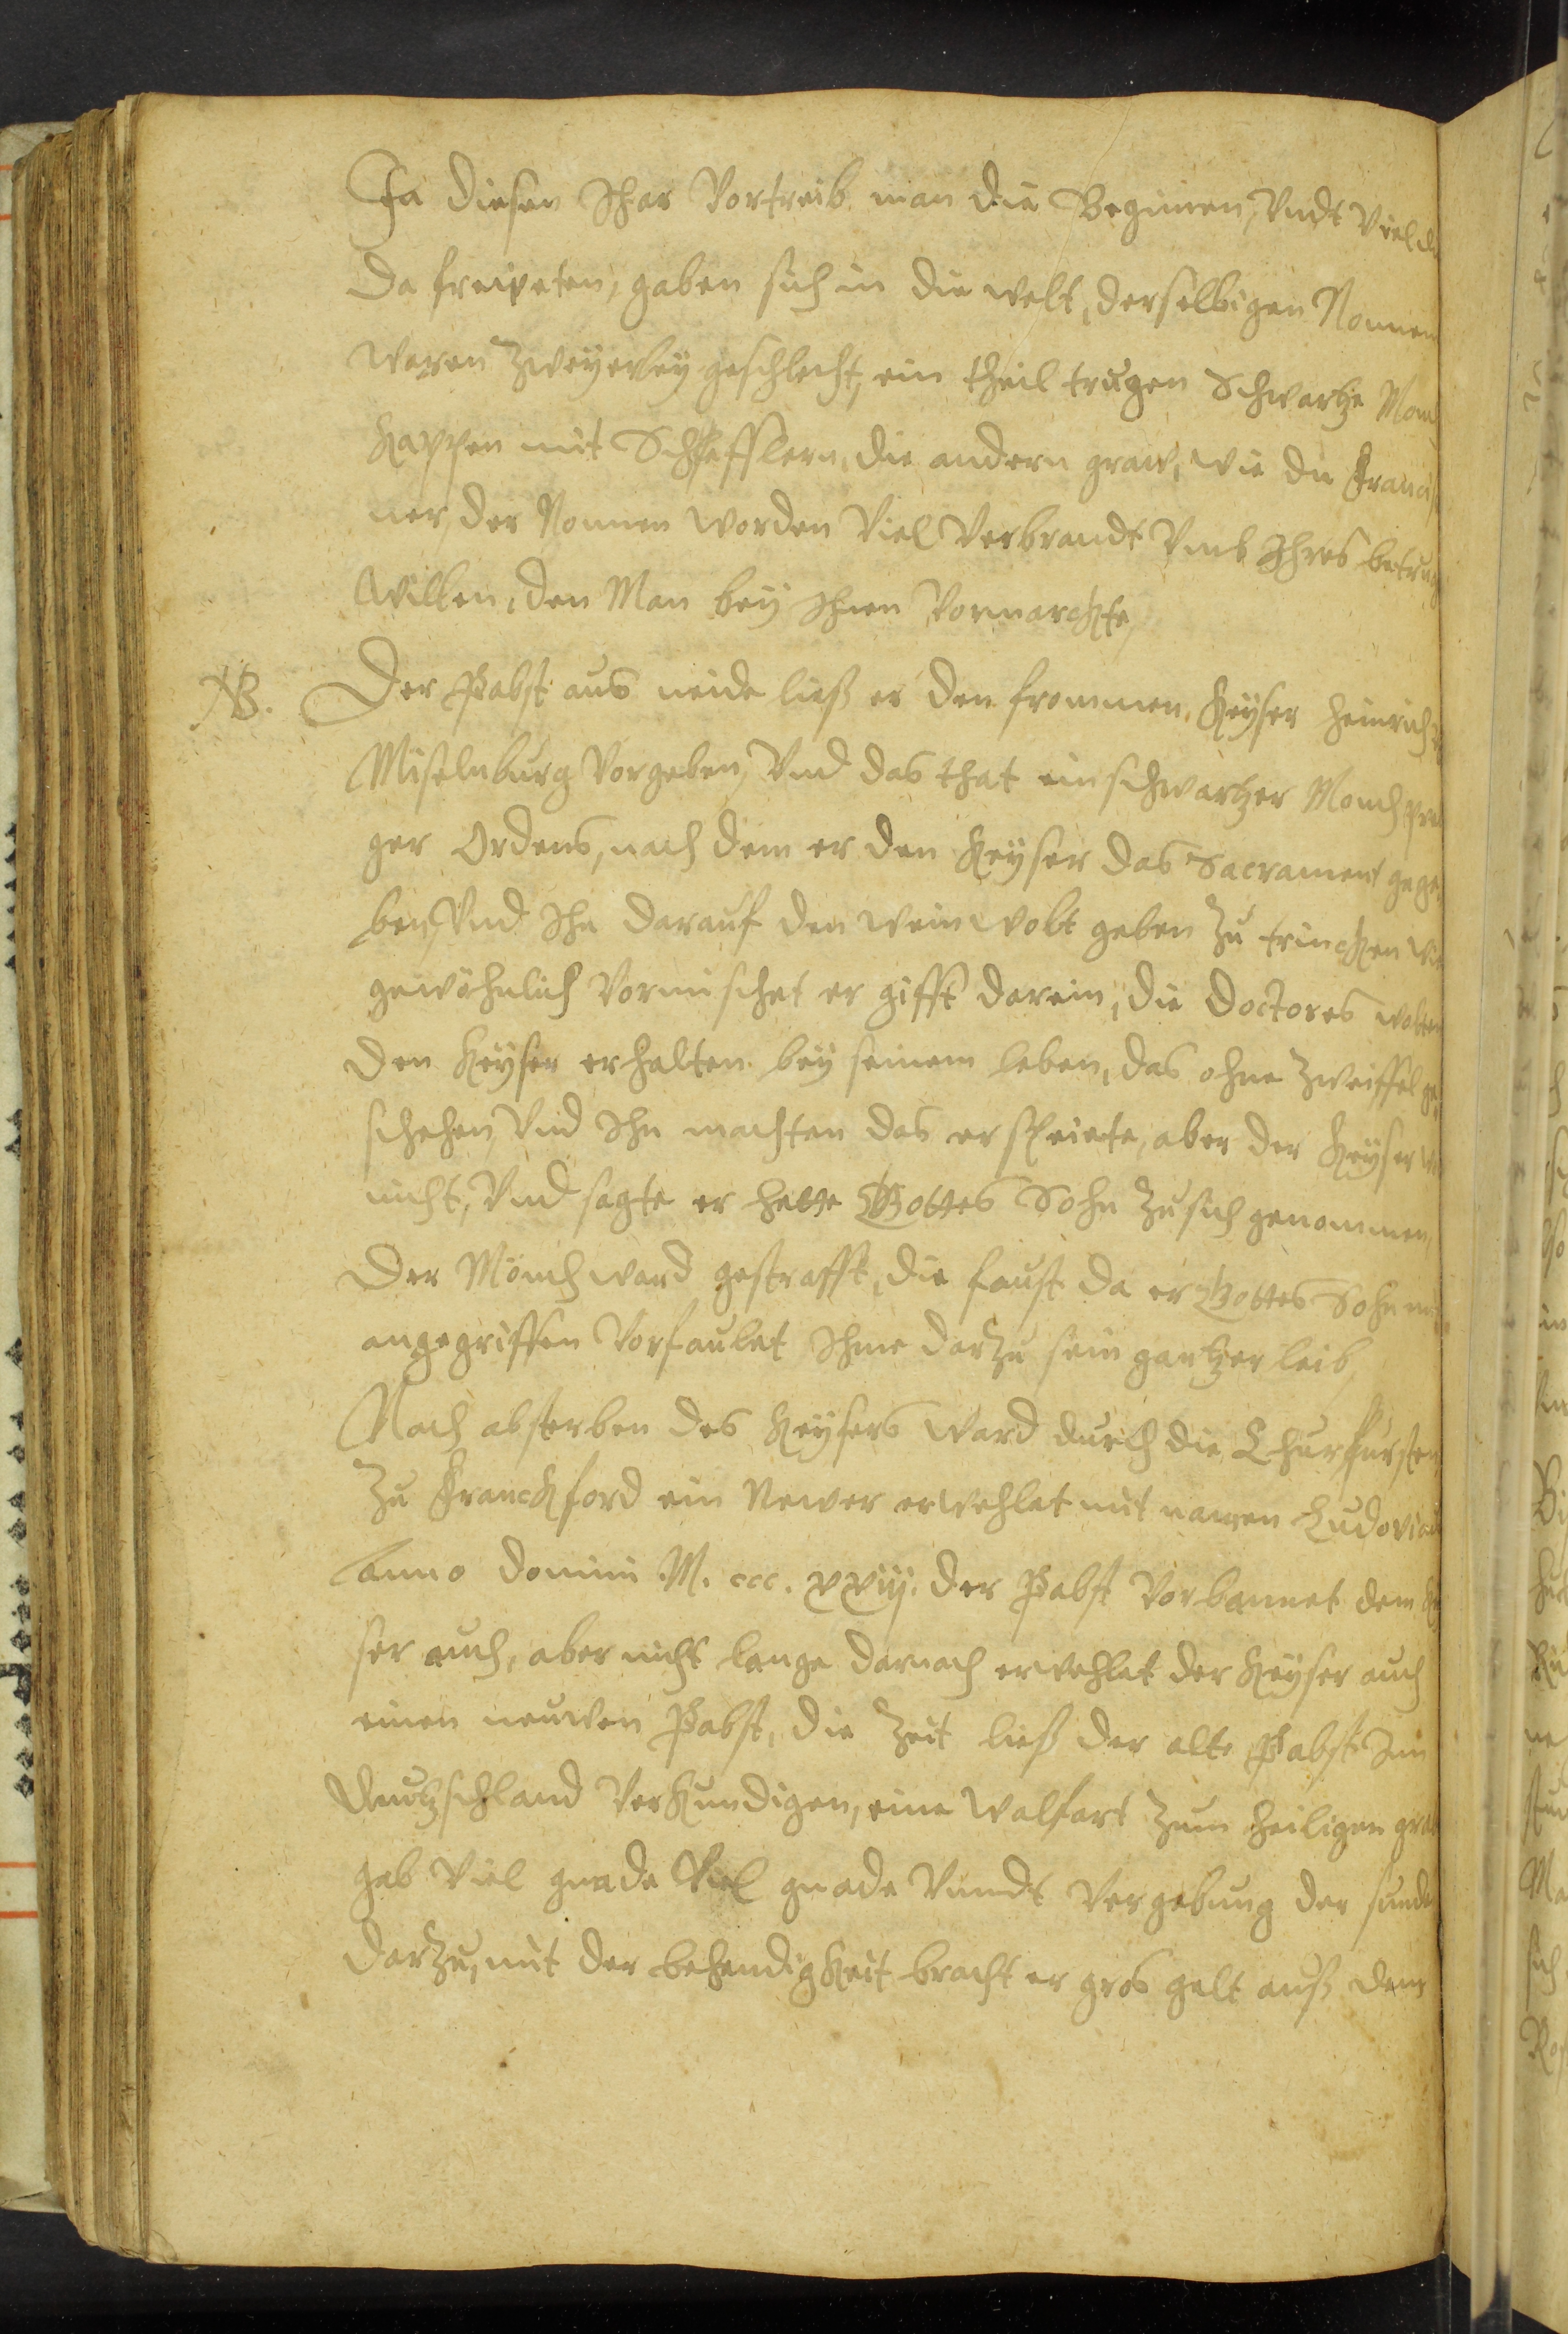 In diesen Jhar Vortreib man die Beginen, Vndt Viel
Da freiheten, gaben sich in die welt, derselbigen Nonnen
waren zweyerley geschlecht, ein theil trugen Schwartze
Kappen mit Scheffflern, die andern graw, wie die Francis
ner der Nonnen worden Viel Verbrandt Vmb Ihres betrug
willen, den Man bey Ihnen Vormarckte,
NB. Der Pabst aus neide ließ er den frommen Keyser Heinrich
Miselnburg Vorgeben, Vnd das that ein schwartzer Monch
ger Ordens, nach dem er den Keyser das Sacrament gege
ben, Vnd Ihn darauf den wein wolt geben zu trincken
gewöhnlich Vormischet er gifft darein, die Doctores wolten
den Keyser erhalten bey seinem leben, das ohne zweiffel ge
schehen, Vnd Ihn machten das er speiete, aber der Keyser
nicht, Vnd sagte er hette Gottes Sohn zu sich genommen,
Der Mönch ward gestrafft, die faust da er Gottes Sohn mit
angegriffen Vorfaulet Ihme darzu sein gantzer leib,
Nach absterben des Keysers ward durch die Churfursten
zu Franckford ein Newer erwehlet mit namen Ludovicus
Anno Domini M. ccc. xxiij. der Pabst Vorbannet dem
ser auch, aber nicht lange darnach erwehlet der Keyser auch
einen neuwen Pabst, die Zeit ließ der alte Pabst Inn
Deutzschland Verkundigen, eine Walfart zum heiligen grab
gab Viel gnade Viel gnade Vnndt Vergebung der sunde
darzu, mit der behendigkeit bracht er gros gelt auß dem